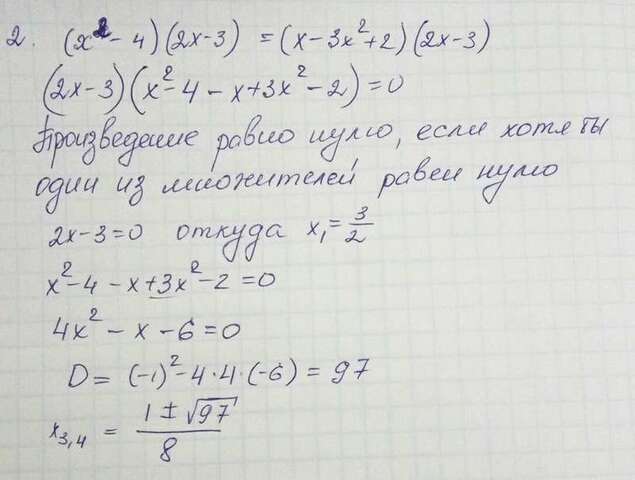 2. (x² - 4)(2x-3) = (x - 3x² + 2)(2x-3)
(2x-3)(x² - 4 - x + 3x² - 2) = 0
Произведение равно нулю, если хотя бы
один из множителей равен нулю
2x - 3 = 0 откуда x₁ = 3/2
x² - 4 - x + 3x² - 2 = 0
4x² - x - 6 = 0
D = (-1)² - 4·4·(-6) = 97
x₃,₄ = (1 ± √97)/8